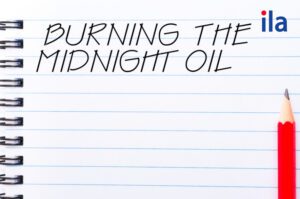 ila
BURNING THE
MIDNIGHT OIL